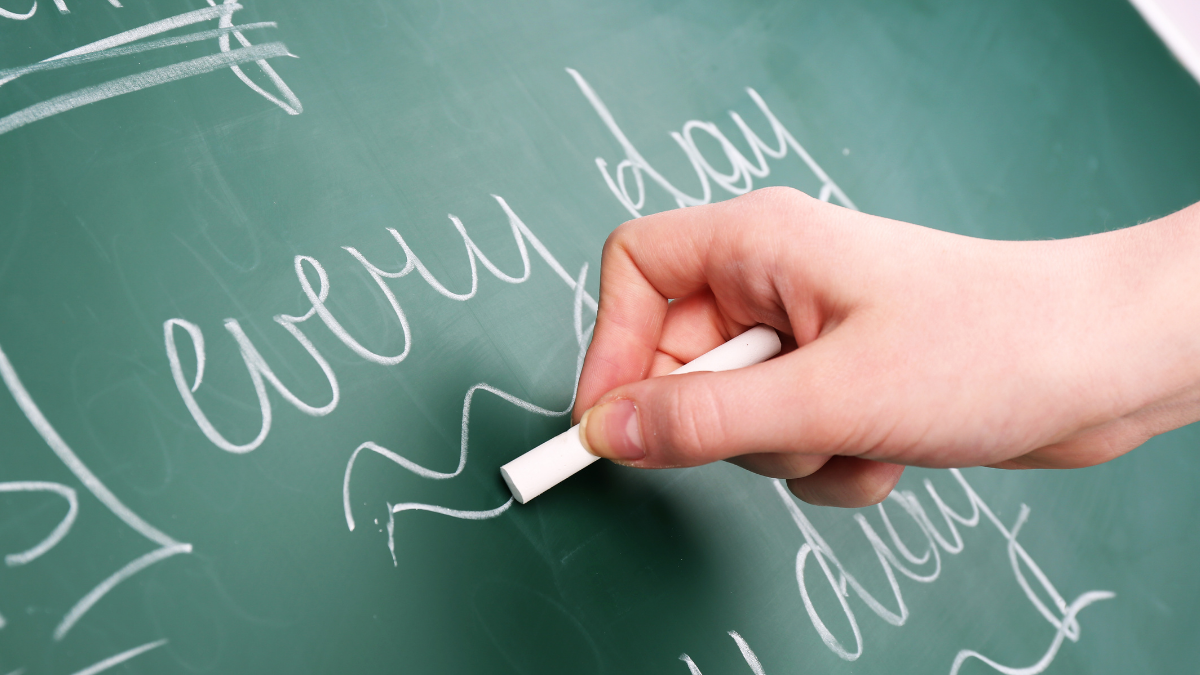 every day
day